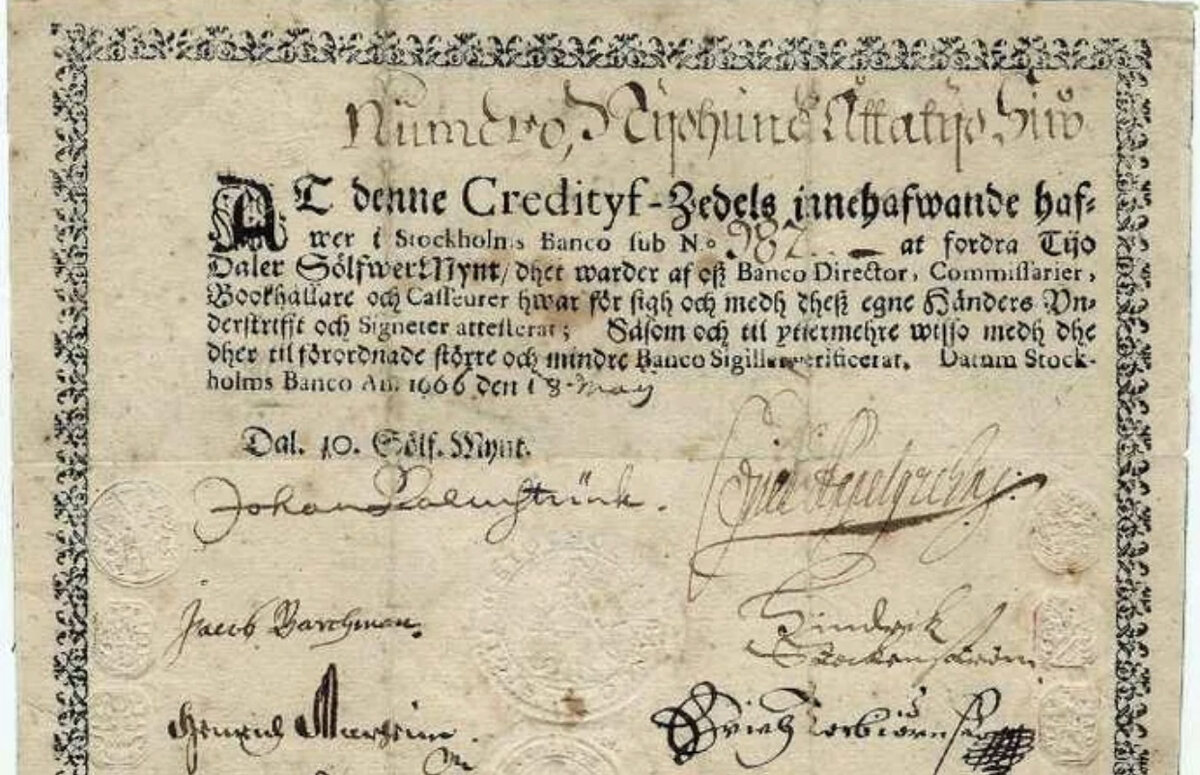 Numero, Nijohund Åttatijo Siu
AT denne Credityf-Zedels innehafwande haf-
wer i Stockholms Banco sub No 987 at fordra Tijo
Daler Sölfwer Mynt/ dhet warder af oß Banco Director, Commissarier,
Bookhållare och Casseurer hwar för sigh och medh dheß egne Händers Vn-
derskrifft och Signeter attesterat; Såsom och til yttermehre wisso medh dhe
dher til förordnade större och mindre Banco Sigiller verificerat. Datum Stock-
holms Banco An. 1666 den 18 May
Dal. 10. Sölf. Mynt.
Johan Palmstruck.
Jacob Barchman.
Hindrich
Henrich